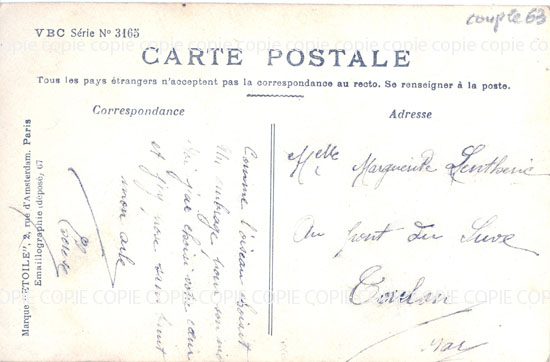 couple 63
VBC Série Nº 3165
CARTE POSTALE
Tous les pays étrangers n'acceptent pas la correspondance au recto. Se renseigner à la poste.
Correspondance
Adresse
Comme l'oiseau choisit
Un ombrage pour son nid
Moi j'ai choisi votre cœur
et
mon
Melle Marguerite
Au Pont du Suve
Toulon
Var
Marque "ETOILE", 2, rue d'Amsterdam, Paris
Emaillographie (déposé) 67
COPIE COPIE COPIE COPIE COPIE COPIE COPIE
COPIE COPIE COPIE COPIE COPIE COPIE COPIE